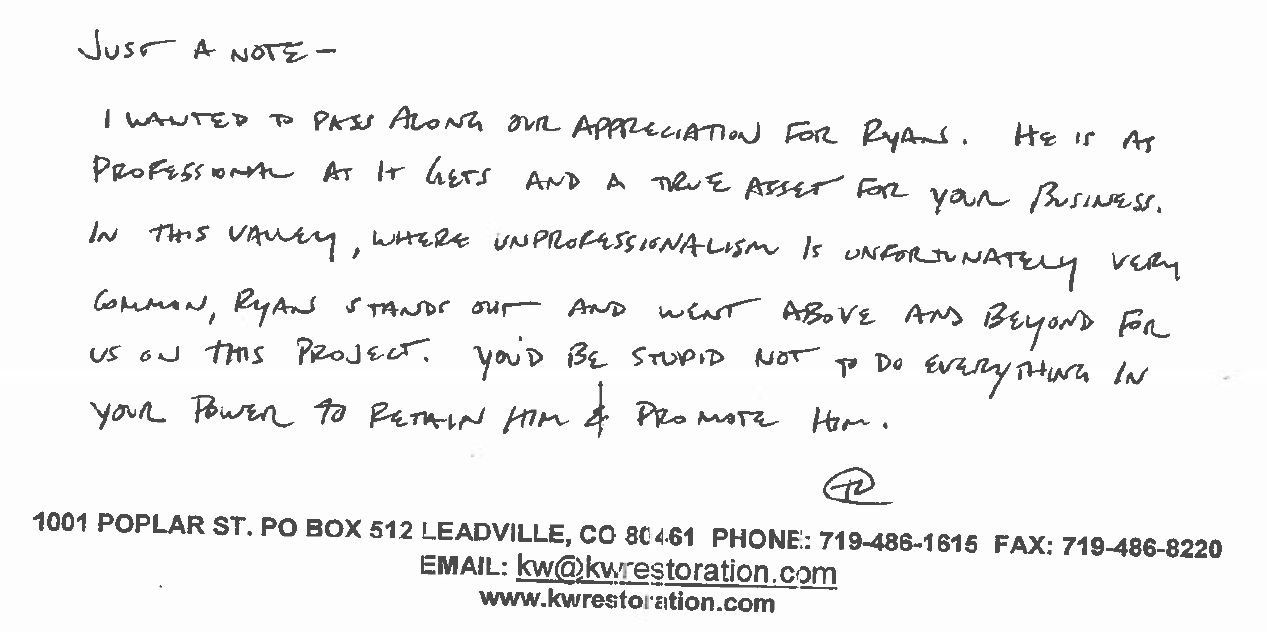 JUST A NOTE -
I WANTED TO PASS ALONG OUR APPRECIATION FOR RYAN. HE IS AS
PROFESSIONAL AS IT GETS AND A TRUE ASSET FOR YOUR BUSINESS.
IN THIS VALLEY, WHERE UNPROFESSIONALISM IS UNFORTUNATELY VERY
COMMON, RYAN STANDS OUT AND WENT ABOVE AND BEYOND FOR
US ON THIS PROJECT. YOU'D BE STUPID NOT TO DO EVERYTHING IN
YOUR POWER TO RETAIN HIM & PROMOTE HIM.
1001 POPLAR ST. PO BOX 512 LEADVILLE, CO 80461 PHONE: 719-486-1615 FAX: 719-486-8220
EMAIL: kw@kwrestoration.com
www.kwrestoration.com